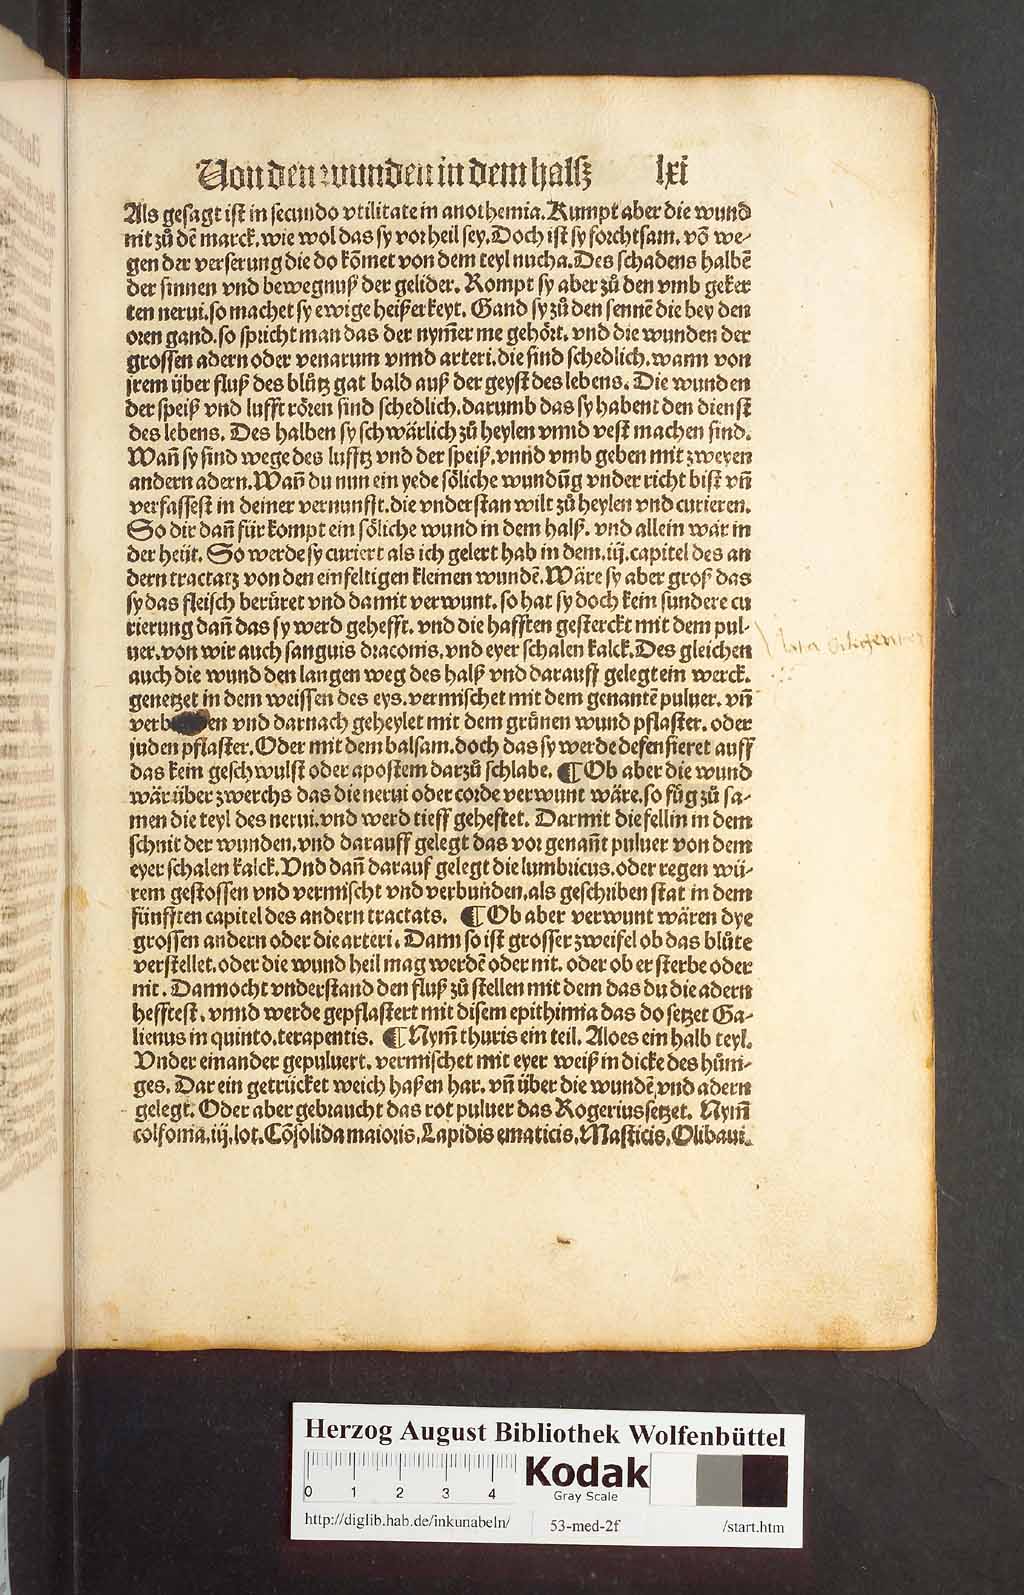 Von den wunden in dem halſz lxi
Als geſagt iſt in ſecundo vtilitate in anothemia. Kumpt aber die wund
nit zuͦ dē marck. wie wol das ſy vor heil ſey. Doch iſt ſy forchtſam. vō we⸗
gen der verſerung die do kōmet von dem teyl nucha. Des ſchadens halbē
der ſinnen vnd bewegnuß der gelider. Kompt ſy aber zuͦ den vmb geker
ten nerui. ſo machet ſy ewige heiſzerkeyt. Gand ſy zuͦ den ſennē die bey den
oren gand. ſo ſpricht man das der nym̄er me gehoͤrt. vnd die wunden der
groſſen adern oder venarum vnnd arteri. die ſind ſchedlich. wann von
jrem uͤber fluß des bluͦtz gat bald auß der geyſt des lebens. Die wunden
der ſpeiß vnd lufft roͤren ſind ſchedlich. darumb das ſy habent den dienſt
des lebens. Des halben ſy ſchwaͤrlich zuͦ heylen vnnd veſt machen ſind.
Wan̄ ſy ſind wege des luftz vnd der ſpeiß. vnnd vmb geben mit zweyen
andern adern. Wan̄ du nun ein yede ſoͤliche wundūg vnder richt biſt vn̄
verfaſſeſt in deiner vernunfft. die vnderſtan wilt zuͦ heylen vnd curieren.
So dir dan̄ fuͤr kompt ein ſoͤliche wund in dem halß. vnd allein waͤr in
der heüt. So werde ſy curiert als ich gelert hab in dem. iij. capitel des an
dern tractatz von den einfeltigen kleinen wundē. Waͤre ſy aber groß das
ſy das fleiſch beruͤret vnd damit verwunt. ſo hat ſy doch kein ſundere cu
rierung dan̄ das ſy werd gehefft. vnd die hafften geſterckt mit dem pul⸗
uer. von wir auch ſanguis draconis. vnd eyer ſchalen kalck. Des gleichen
auch die wund den langen weg des halß vnd darauff gelegt ein werck.
genetzet in dem weiſſen des eys. vermiſchet mit dem genantē puluer. vn̄
verb en vnd darnach geheylet mit dem gruͤnen wund pflaſter. oder
juden pflaſter. Oder mit dem balſam. doch das ſy werde defenſieret auff
das kein geſchwulſt oder apoſtem darzuͦ ſchlahe. ¶ Ob aber die wund
waͤr uͤber zwerchs das die nerui oder corde verwunt waͤre. ſo fuͤg zuͦ ſa⸗
men die teyl des nerui. vnd werd tieff geheftet. Darmit die fellin in dem
ſchnit der wunden. vnd darauff gelegt das vor genan̄t puluer von dem
eyer ſchalen kalck. Vnd dan̄ darauf gelegt die lumbricus. oder regen wuͤ⸗
rem geſtoſſen vnd vermiſcht vnd verbunden. als geſchriben ſtat in dem
fünfften capitel des andern tractats. ¶ Ob aber verwunt waͤren dye
groſſen andern oder die arteri. Dann ſo iſt groſſer zweifel ob das bluͦte
verſtellet. oder die wund heil mag werdē oder nit. oder ob er ſterbe oder
nit. Dannocht vnderſtand den fluß zuͦ ſtellen mit dem das du die adern
heffteſt. vnnd werde gepflaſtert mit diſem epithimia das do ſetzet Ga⸗
lienus in quinto. terapentis. ¶ Nym̄ thuris ein teil. Aloes ein halb teyl.
Vnder einander gepuluert. vermiſchet mit eyer weiß in dicke des hüni⸗
ges. Dar ein getrücket weich haßen har. vn̄ uͤber die wundē vnd adern
gelegt. Oder aber gebraucht das rot puluer das Rogerius ſetzet. Nym̄
colfonia. iij. lot. Cōſolida maioris. Lapidis ematicis. Maſticis. Olibani.
Herzog August Bibliothek Wolfenbüttel
0 1 2 3 4
Kodak
Gray Scale
http://diglib.hab.de/inkunabeln/ 53-med-2f /start.htm